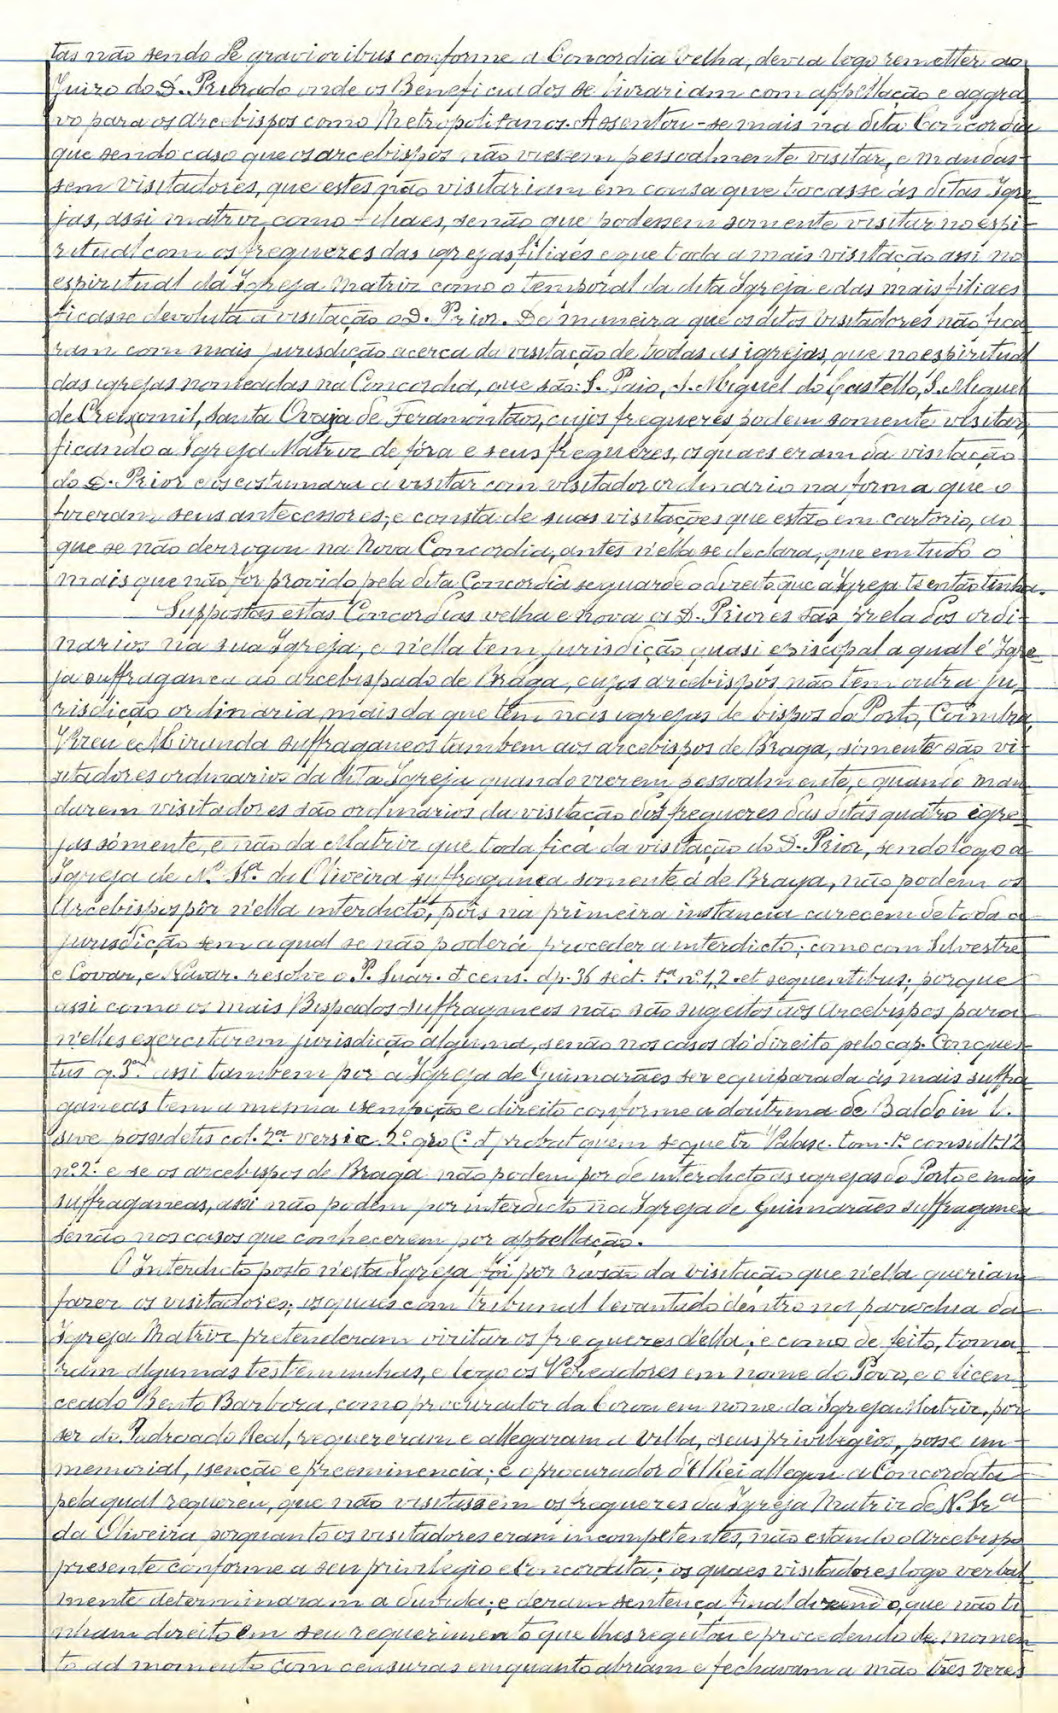 tas não sendo De gravioribus conforme a Concordia velha, devia logo remetter ao
Juizo do D. Priorado onde os Beneficiados se livrariam com appellação e aggra-
vo para os arcebispos como Metropolitanos. Assentou-se mais na dita Concordia
que sendo caso que os arcebispos não viessem pessoalmente visitar, e mandas-
sem visitadores, que estes não visitariam em cousa que tocasse ás ditas Igre-
jas, assi matriz, como filiaes, senão que podessem somente visitar no espi-
ritual com os freguezes das igrejas filiaes e que toda a mais visitação assi no
espiritual da Igreja Matriz como o temporal da dita Igreja e das mais filiaes
ficasse devoluta a visitação o D. Prior. De maneira que os ditos Visitadores não fica-
ram com mais jurisdição acerca da visitação de todas as igrejas, que no espiritual
das igrejas nomeadas na Concordia, que são: S. Paio, S. Miguel do Castello, S. Miguel
de Creixomil, Santa Ovaja de Feramontãos, cujos freguezes podem somente visitar,
ficando a Igreja Matriz de fóra e seus freguezes, os quaes eram da visitação
do D. Prior e os costumara a visitar com visitador ordinario na forma que o
fizeram seus antecessores, e consta de suas visitações que estão em cartorio, ao
que se não derrogou na Nova Concordia, antes n'ella se declara, que em tudo o
mais que não for provido pela dita Concordia se guarde o direito que a Igreja té então tinha.
Suppostas estas Concordias velha e nova os D. Priores são prelados ordi-
narios na sua Igreja, e n'ella tem jurisdição quasi episcopal a qual é Igre-
ja suffraganea ao arcebispado de Braga, cujos arcebispos não tem outra ju-
risdição ordinaria, mais da que têm nas igrejas de bispos do Porto, Coimbra,
Vizeu e Miranda suffraganeos tambem aos arcebispos de Braga, sómente são vi-
sitadores ordinarios da dita Igreja quando vierem pessoalmente, e quando man-
darem visitadores são ordinarios da visitação dos freguezes das ditas quatro egre-
jas sómente, e não da Matriz que toda fica da visitação do D. Prior, sendo logo a
Igreja de N.ª Sr.ª da Oliveira suffraganea somente á de Braga, não podem os
Arcebispos pôr n'ella interdicto, pois na primeira instancia carecem de toda a
jurisdição sem a qual se não poderá proceder a interdicto; como com Silvestre
e Covar, e Navar. resolve o P. Suar. d cens. dp. 36 sect. 1.ª nº 1,2. et sequentibus; porque
assi como os mais Bispados suffraganeos não são sugeitos aos Arcebispos para
n'elles exercitarem jurisdição alguma, senão nos casos do direito pelo cap. Conques-
tus q. 3.ª assi tambem por a Igreja de Guimarães ser equiparada ás mais suffra-
ganeas tem a mesma isempção e direito conforme a doutrina de Baldo in l.
sive possidetis col. 2.ª versic. 2.º C. d probat quem sequetr Valasc. tom. 1.º consult. 12
nº 2.º e se os arcebispos de Braga não podem por de interdicto as igrejas do Porto e mais
suffraganeas, assi não podem por interdicto na Igreja de Guimarães suffraganea
senão nos casos que conhecerem por appellação.
O interdicto posto n'esta Igreja foi por rasão da visitação que n'ella queriam
fazer os visitadores; os quaes com tribunal levantado dentro na parochia da
Igreja Matriz pretenderam visitar os freguezes d'ella; e como de feito, toma-
ram algumas testemunhas, e logo os Vereadores em nome do Povo, e o licen-
ceado Bento Barboza, como procurador da Coroa em nome da Igreja Matriz, por
ser do Padroado Real, requereram e allegaram a Villa, seus privilegios, posse im-
memorial, isenção e preeminencia; e o procurador d'El Rei allegou a Concordata
pela qual requereu, que não visitassem os freguezes da Igreja Matriz de N. Sr.ª
da Oliveira porquanto os visitadores eram incompetentes, não estando o Arcebispo
presente conforme a seu privilegio e Concordata; os quaes visitadores logo verbal-
mente determinaram a duvida; e deram sentença final dizendo, que não ti-
nham direito em seu requerimento que lhes regeitou e procedendo de momen-
to ad momento com censuras emquanto abriam e fechavam a mão três vezes